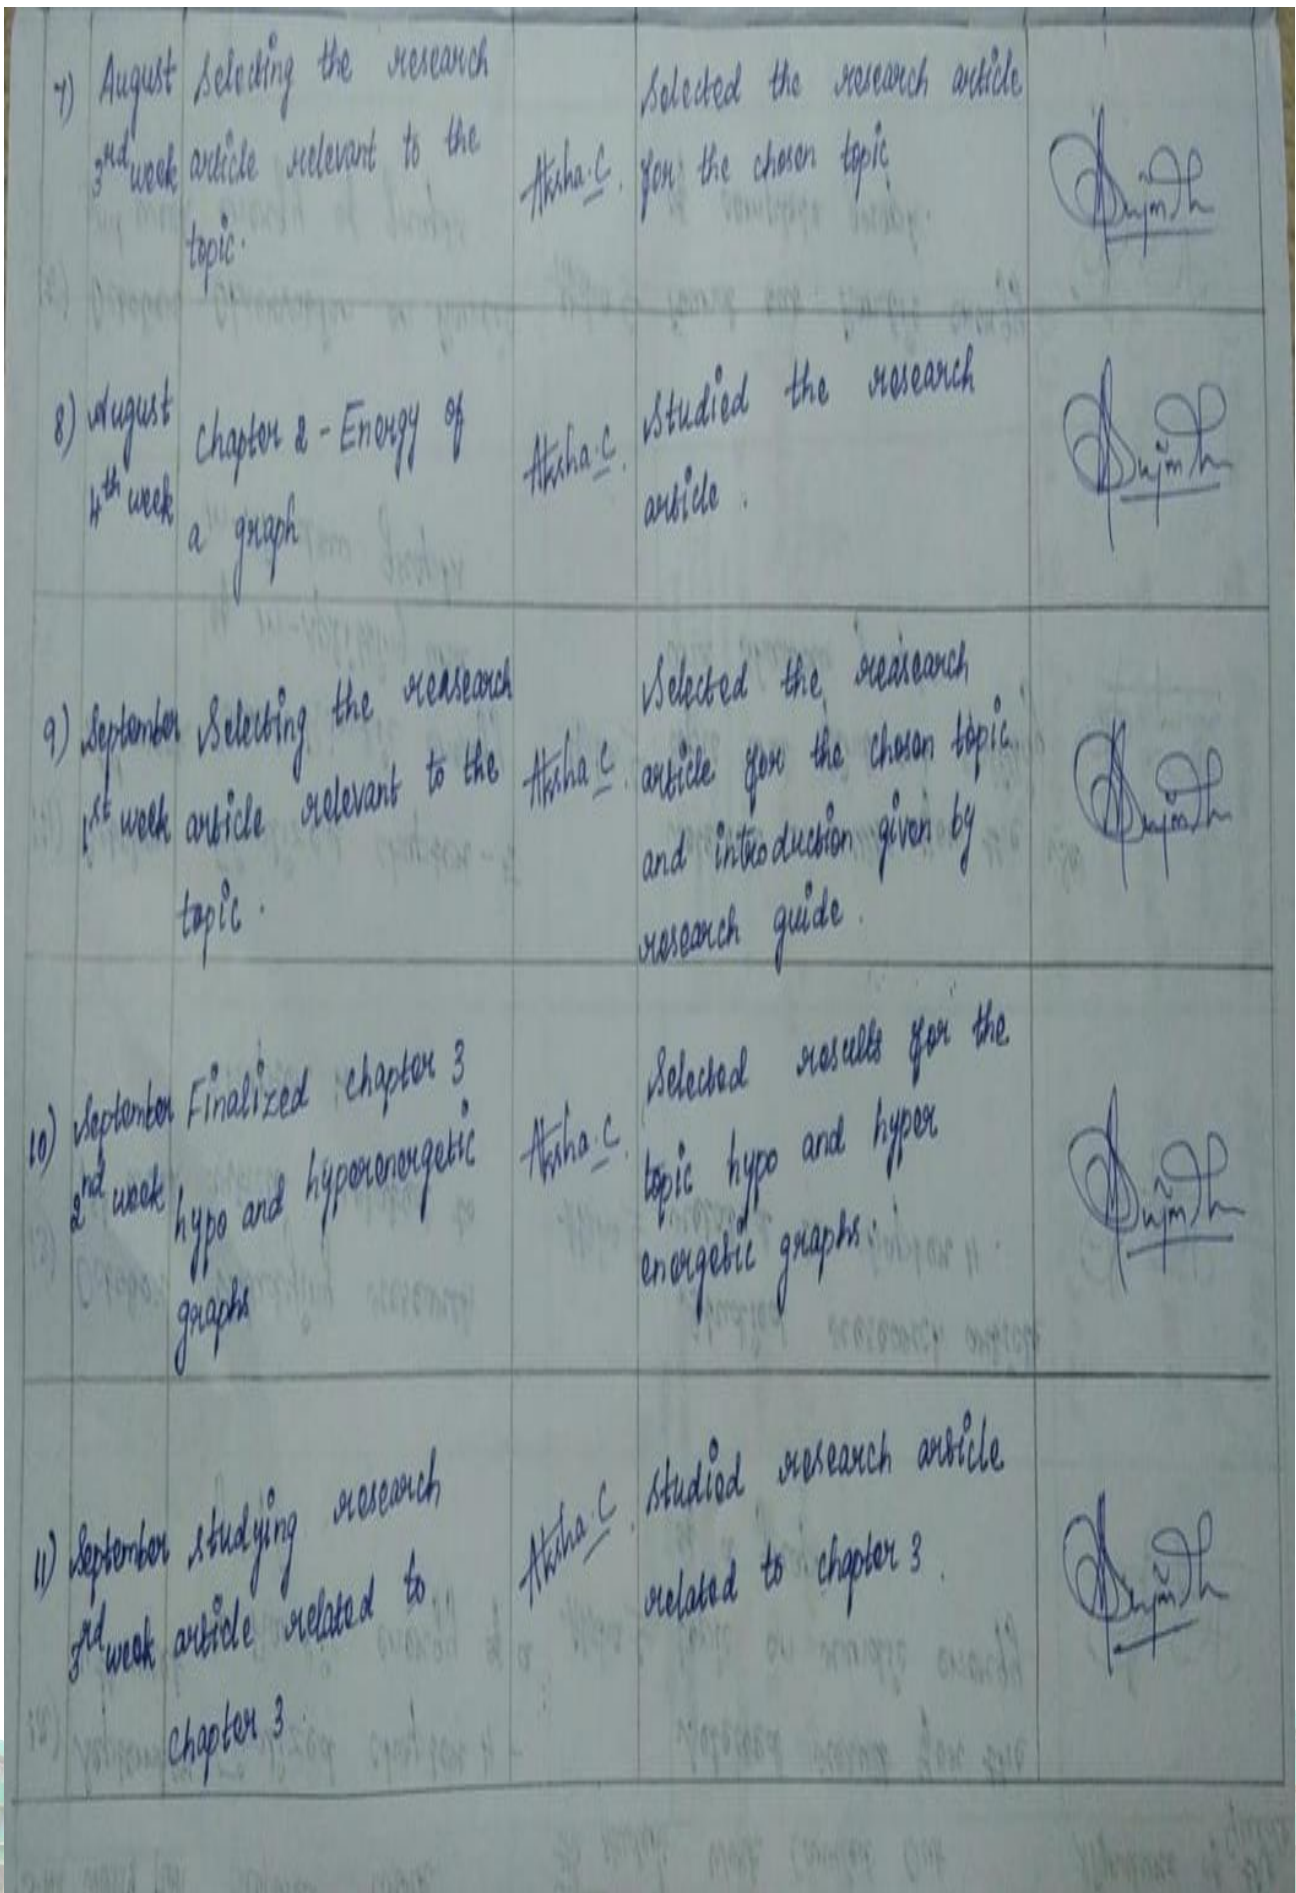 7) August Selecting the research
3rd week article relevant to the
topic.
Aksha.C.
Selected the research article
for the chosen topic
8) August Chapter 2 - Energy of
4th week a graph
Aksha.C.
Studied the research
article.
9) September Selecting the reasearch
1st week article relevant to the
topic.
Aksha C.
Selected the reasearch
article for the chosen topic
and introduction given by
research guide.
10) September Finalized chapter 3
2nd week hypo and hyperenergetic
graphs
Aksha.C.
Selected results for the
topic hypo and hyper
energetic graphs.
11) September Studying research
3rd week article related to
chapter 3.
Aksha.C.
Studied research article
related to chapter 3.